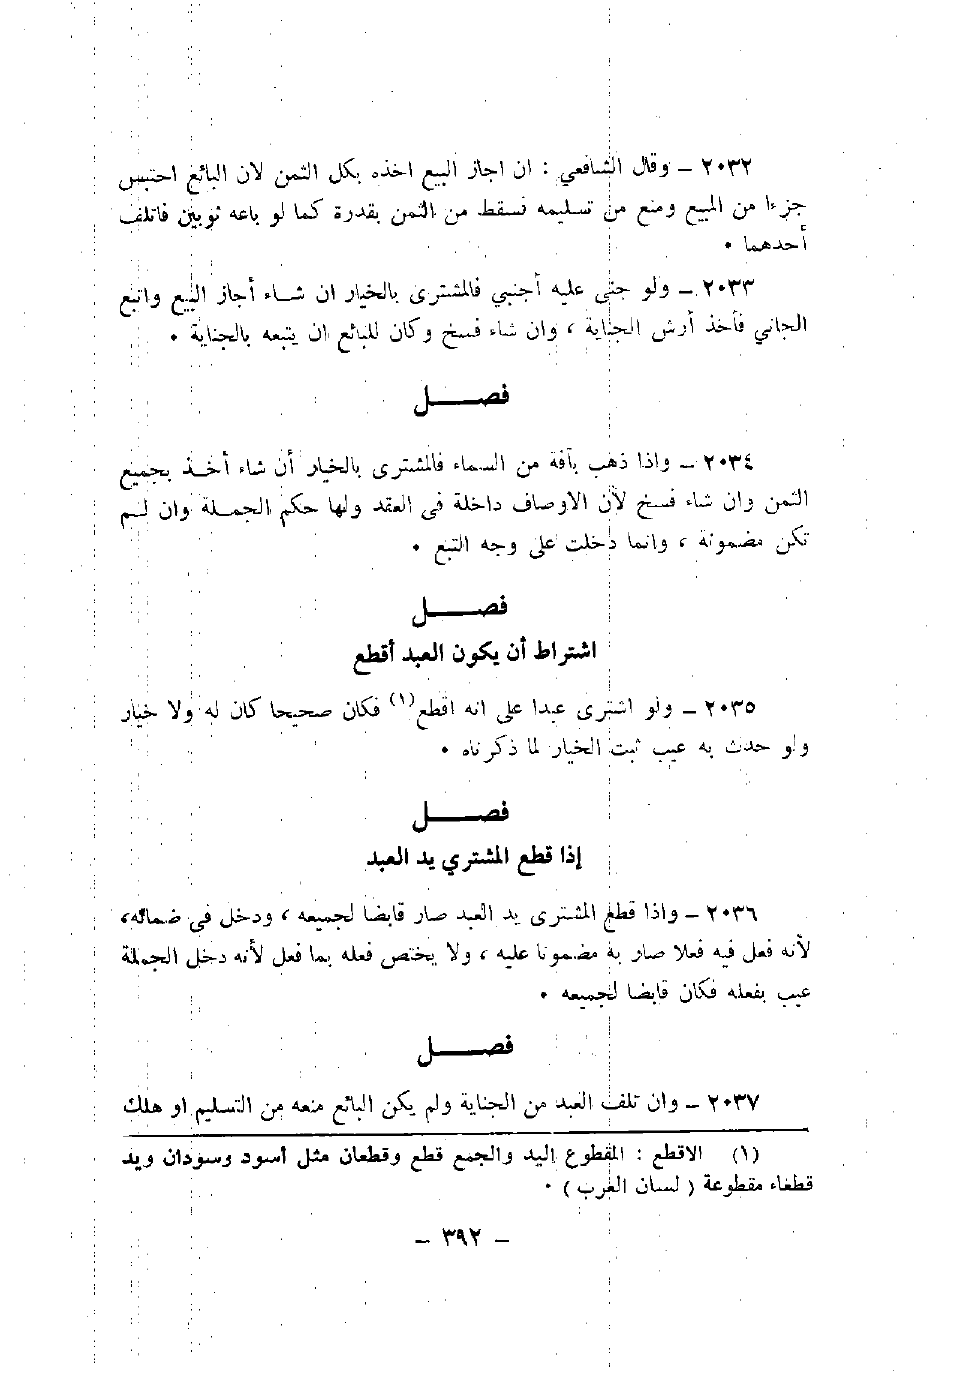 ٢٠٣٢ – وقال الشافعي : ان اجاز البيع اخذه بكل الثمن لان البائع احتبس
جزءا من المبيع ومنع من تسليمه نسقط من الثمن بقدرة كما لو باعه ثوبين فاتلف
أحدهما ٠
٢٠٣٣ – ولو جنى عليه أجنبي فالمشترى بالخيار ان شاء أجاز البيع واتبع
الجاني فأخذ أرش الجناية ، وان شاء فسخ وكان للبائع ان يتبعه بالجناية ٠
فصل
٢٠٣٤ – واذا ذهب بآفة من السماء فالمشترى بالخيار أن شاء أخذ بجميع
الثمن وان شاء فسخ لأن الاوصاف داخلة في العقد ولها حكم الجملة وان لم
تكن مضمونة ، وانما دخلت على وجه التبع ٠
فصل
اشتراط أن يكون العبد أقطع
٢٠٣٥ – ولو اشترى عبدا على انه اقطع(١) فكان صحيحا كان له ولا خيار
ولو حدث به عيب ثبت الخيار لما ذكرناه ٠
فصل
إذا قطع المشتري يد العبد
٢٠٣٦ – واذا قطع المشترى يد العبد صار قابضا لجميعه ، ودخل في ضمانه،
لأنه فعل فيه فعلا صار به مضمونا عليه ، ولا يختص فعله بما فعل لأنه دخل الجملة
عيب بفعله فكان قابضا لجميعه ٠
فصل
٢٠٣٧ – وان تلف العبد من الجناية ولم يكن البائع منعه من التسليم او هلك
(١) الاقطع : المقطوع اليد والجمع قطع وقطعان مثل أسود وسودان ويد
قطعاء مقطوعة ( لسان العرب ) ٠
– ٣٩٢ –